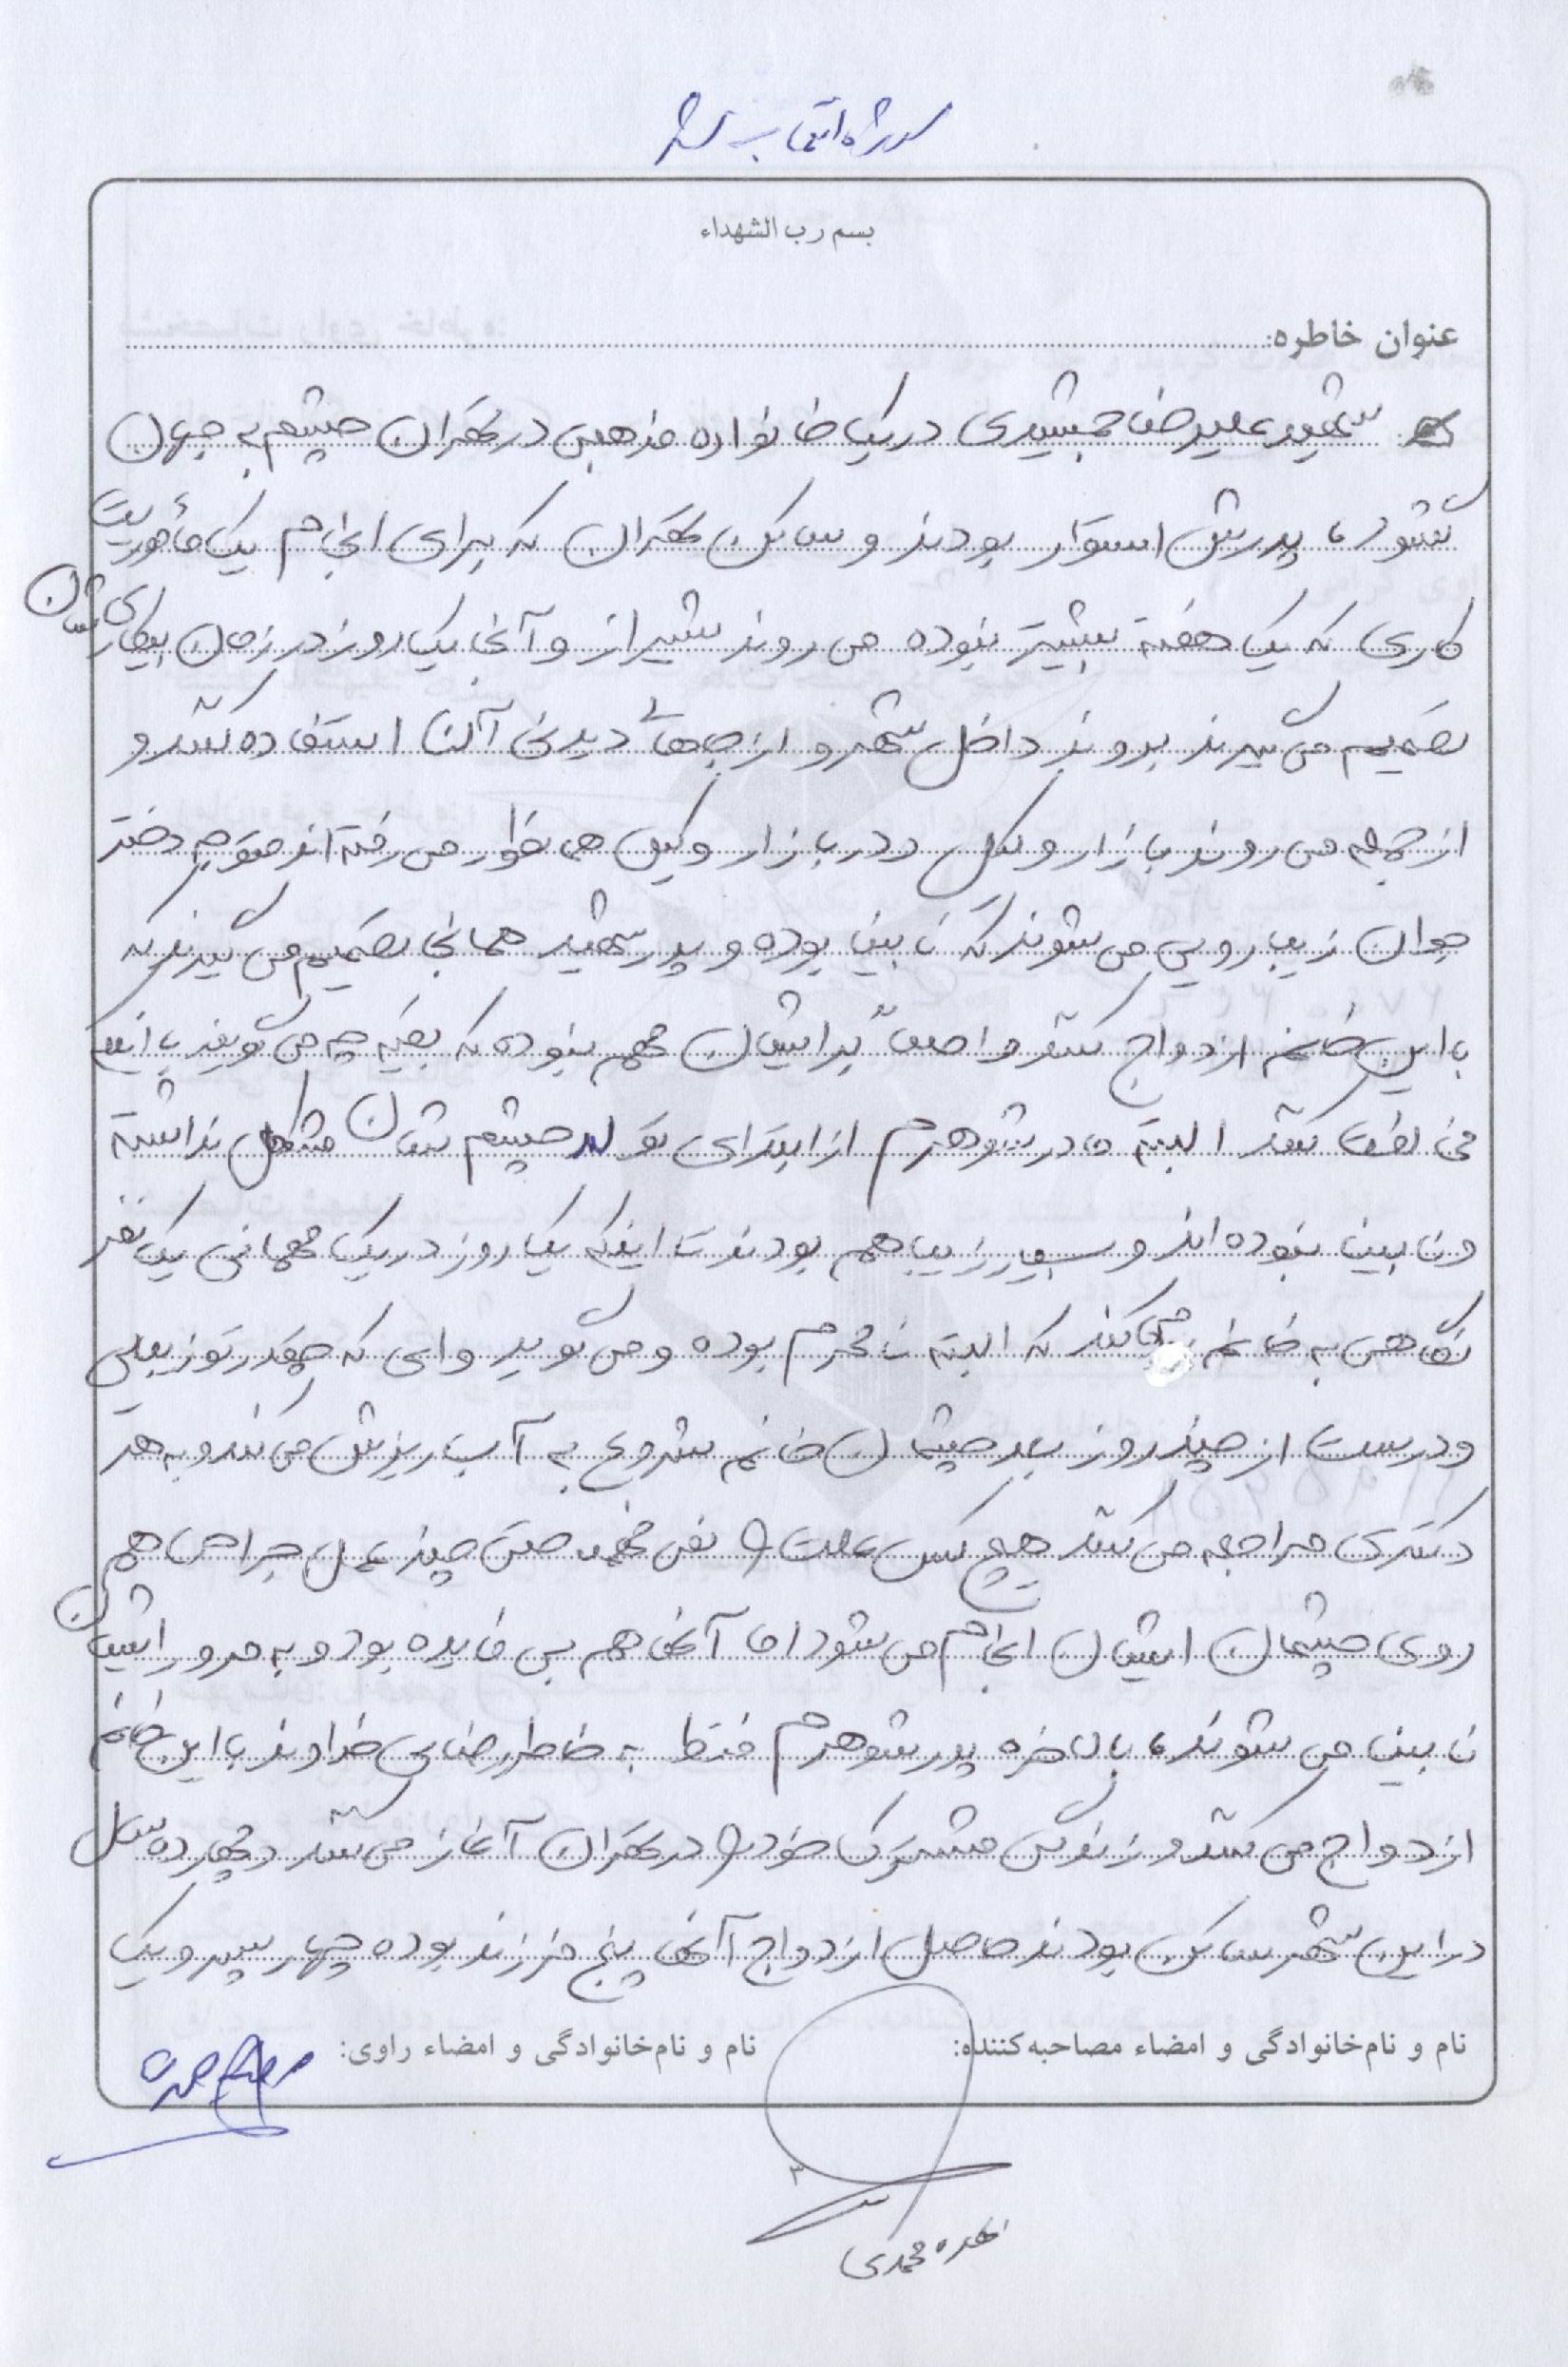 بسم رب الشهداء
عنوان خاطره:
شهید علیرضا جمشیدی در یک خانواده مذهبی در تهران چشم به جهان
گشود، پدرش استوار بودند و ساکن تهران که برای انجام یک مأموریت
کاری که یک هفته بیشتر نبوده می روند شیراز و آنجا یک روز در زمان بیکاری شان
تصمیم می گیرند بروند داخل شهر و از جاهای دیدنی آنجا استفاده کنند و
از جمله می روند بازار وکیل و در بازار وکیل همانطور می رفته اند متوجه دختر
جوان زیبا رویی می شوند که نابینا بوده و پدر شهید همانجا تصمیم می گیرند که
با این خانم ازدواج کنند و اصلاً برایشان مهم نبوده که بقیه چه می گویند یا اینکه
مخالفت کنند البته مادر شوهرم از ابتدای تولد چشم شان مشکل نداشته
و نابینا نبوده اند و بسیار زیبا هم بودند تا اینکه یک روز در یک مهمانی یک نفر
نگاهی به خانم می کند که البته نامحرم بوده و می گوید وای که چقدر تو زیبایی
و درست از چند روز بعد چشمان خانم شروع به آب ریزش می کند و به هر
دکتری مراجعه می کنند هیچ کس علت را نمی فهمد حتی چند عمل جراحی هم
روی چشمان ایشان انجام می شود اما آنها هم بی فایده بود و به مرور ایشان
نابینا می شوند، بالاخره پدر شوهرم فقط به خاطر رضای خداوند با این خانم
ازدواج می کنند و زندگی مشترک خود را در تهران آغاز می کنند و چهارده سال
در این شهر ساکن بودند حاصل ازدواج آنها پنج فرزند بوده چهار پسر و یک
نام و نام‌خانوادگی و امضاء مصاحبه‌کننده:
نام و نام‌خانوادگی و امضاء راوی:
محمدی